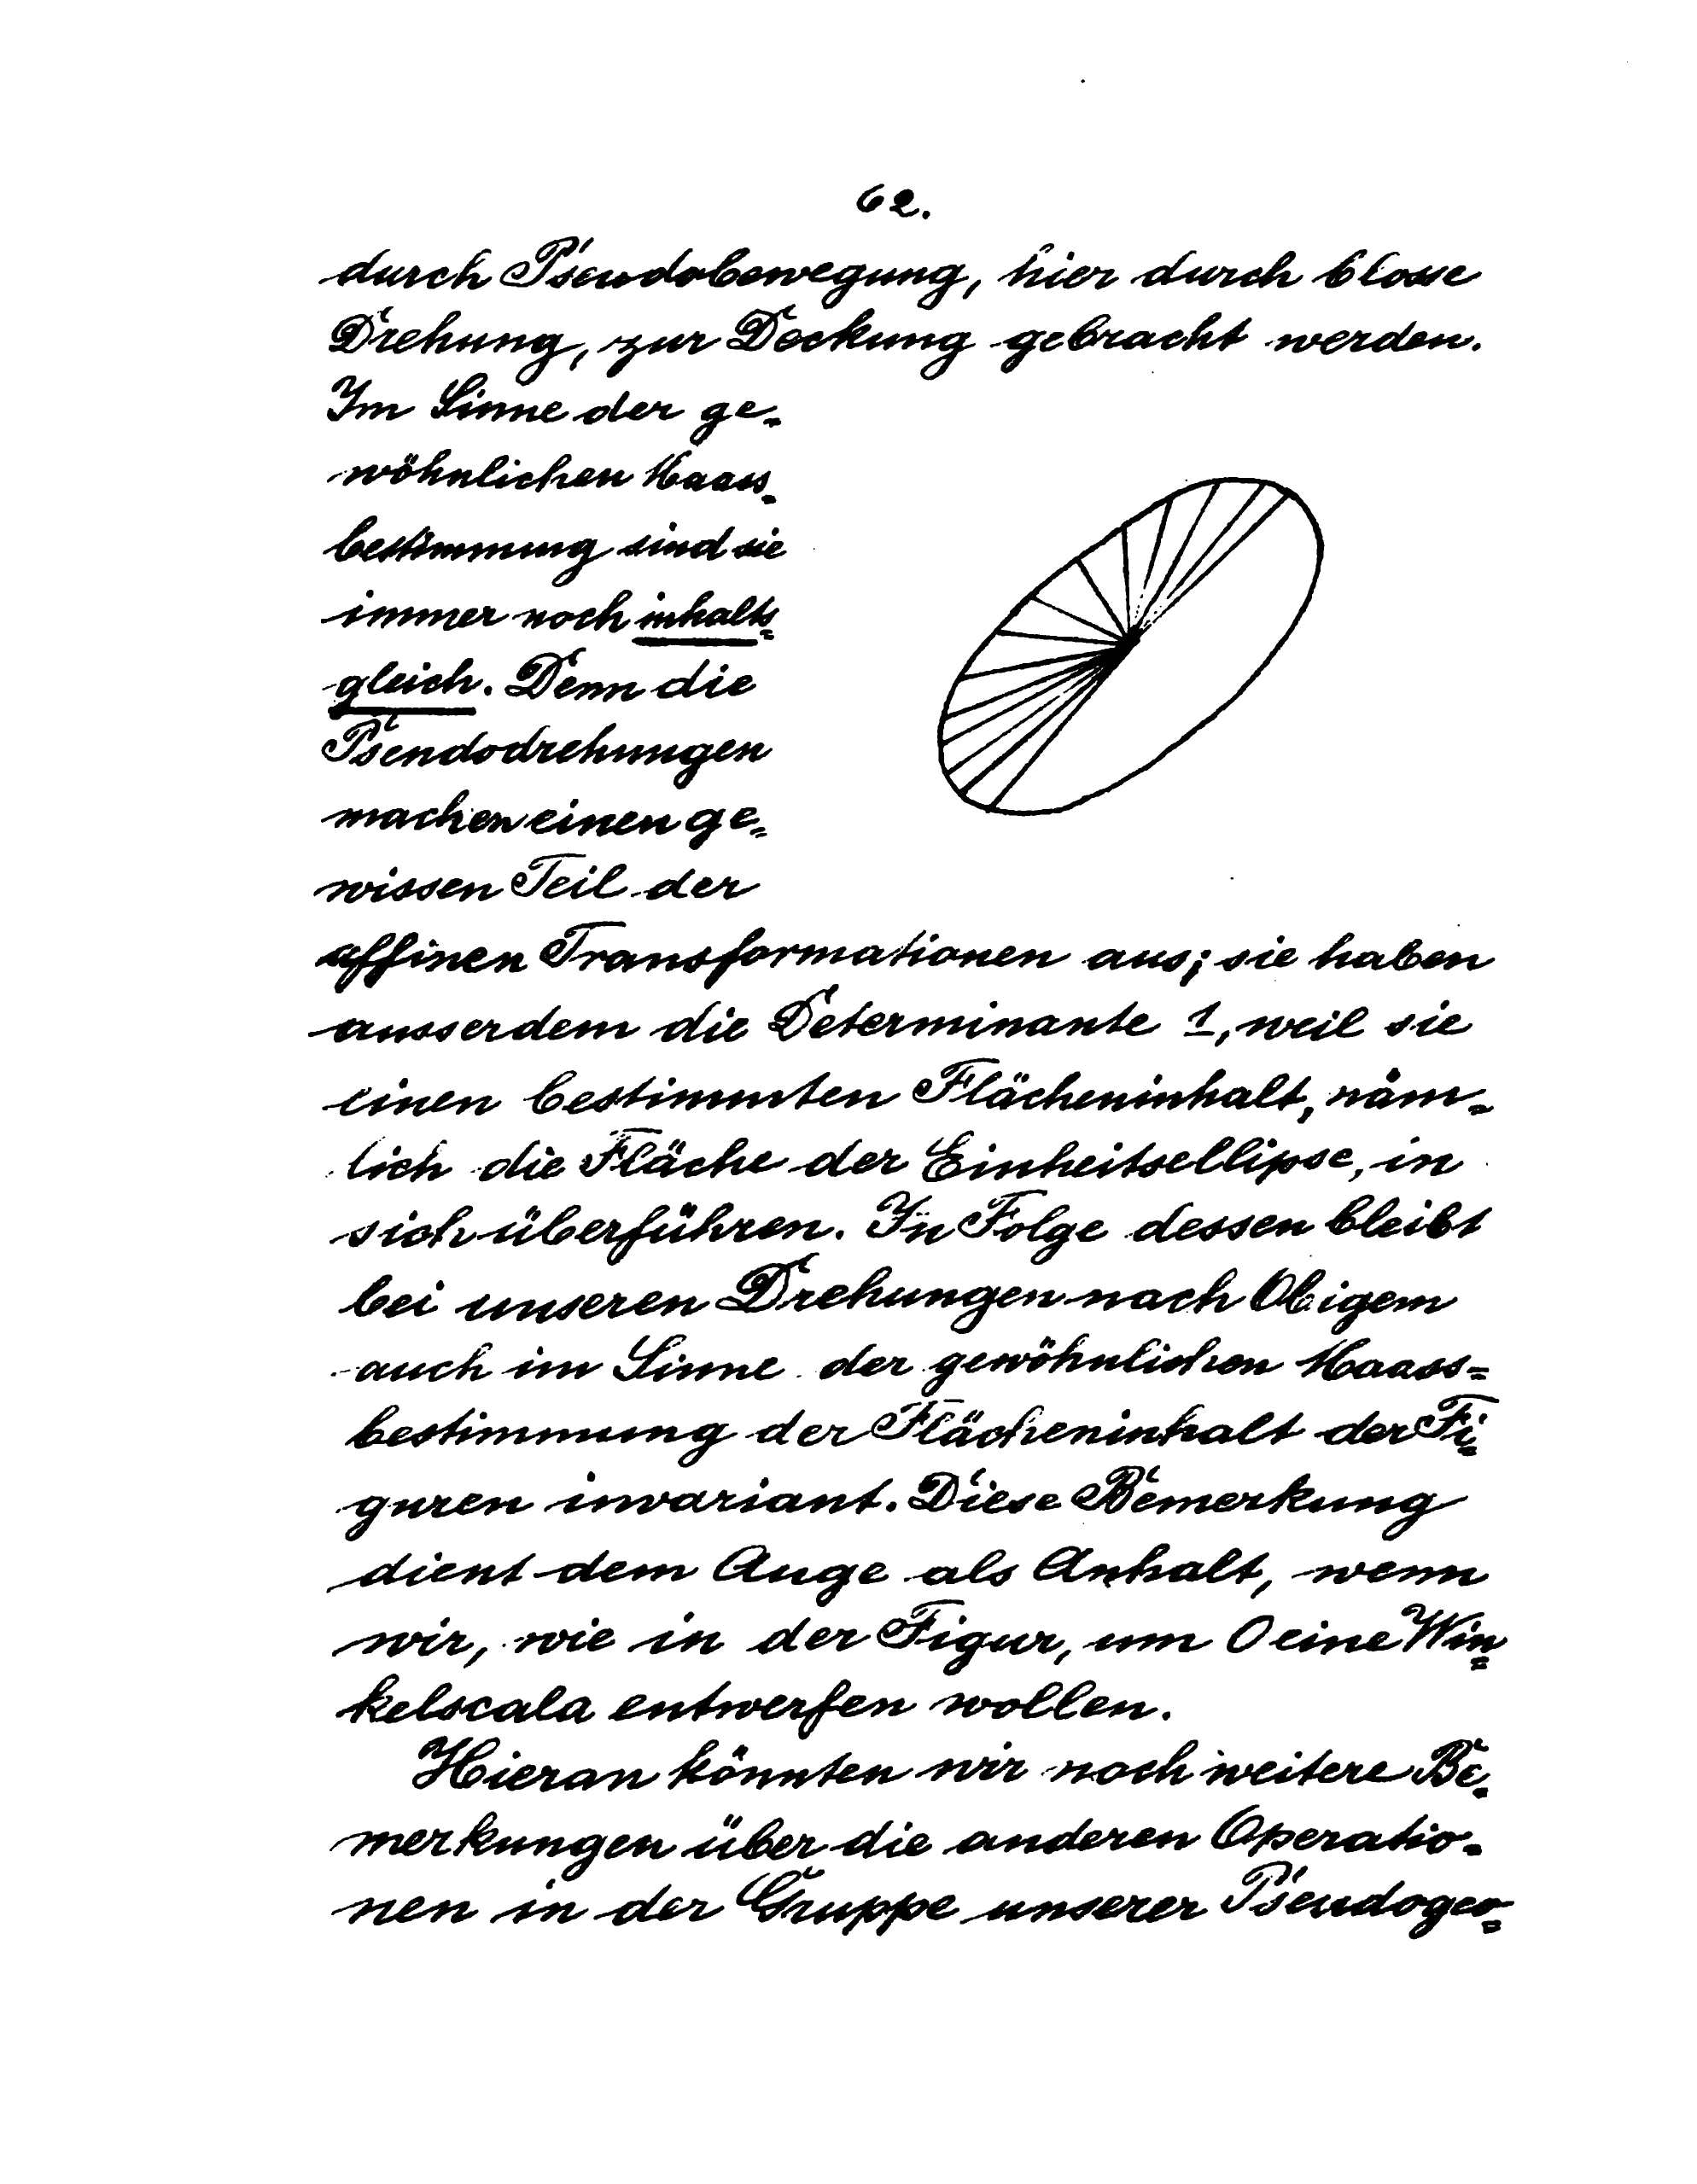 62.
durch Pseudobewegung, hier durch blosse
Drehung, zur Deckung gebracht werden.
Im Sinne der ge-
wöhnlichen Maass-
bestimmung sind sie
immer noch inhalts=
gleich. Denn die
Pseudodrehungen
machen einen ge=
wissen Teil der
affinen Transformationen aus; sie haben
ausserdem die Determinante 1, weil sie
einen bestimmten Flächeninhalt, näm=
lich die Fläche der Einheitsellipse, in
sich überführen. In Folge dessen bleibt
bei unseren Drehungen nach Obigem
auch im Sinne der gewöhnlichen Maass=
bestimmung der Flächeninhalt der Fi=
guren invariant. Diese Bemerkung
dient dem Auge als Anhalt, wenn
wir, wie in der Figur, um O eine Win=
kelscala entwerfen wollen.
Hieran könnten wir noch weitere Be=
merkungen über die anderen Operatio=
nen in der Gruppe unserer Pseudogeo=